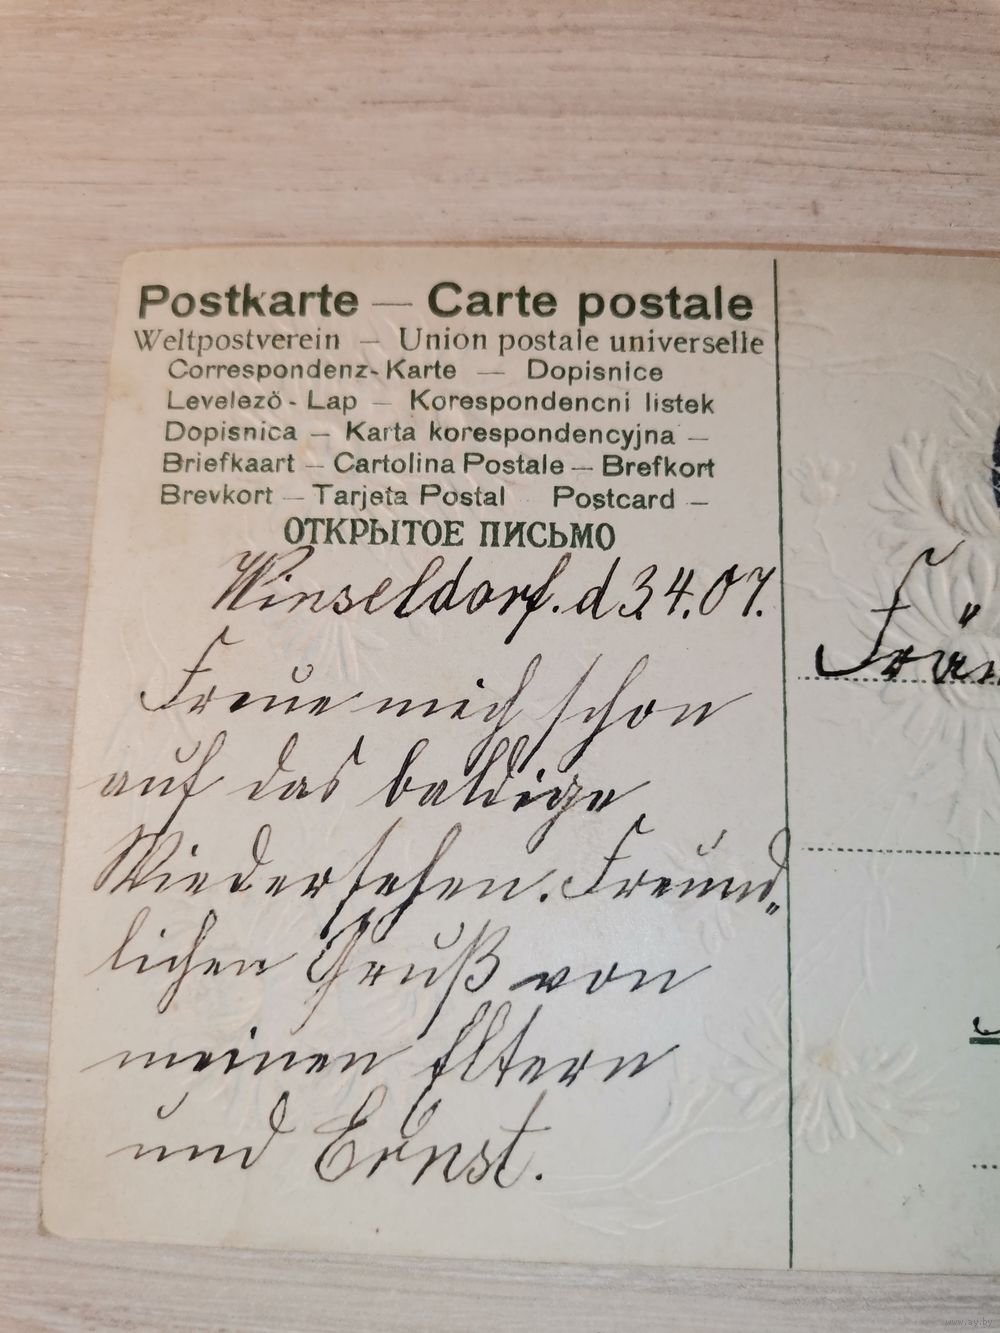 Postkarte — Carte postale
Weltpostverein — Union postale universelle
Correspondenz-Karte — Dopisnice
Levelező-Lap — Korespondencni listek
Dopisnica — Karta korespondencyjna —
Briefkaart — Cartolina Postale — Brefkort
Brevkort — Tarjeta Postal Postcard —
ОТКРЫТОЕ ПИСЬМО
Winseldorf. d 3.4.07.
Freue mich schon
auf das baldige
Wiedersehen. Freund„
lichen Gruß von
meinen Eltern
und Ernst.
Fräu
www.ay.by